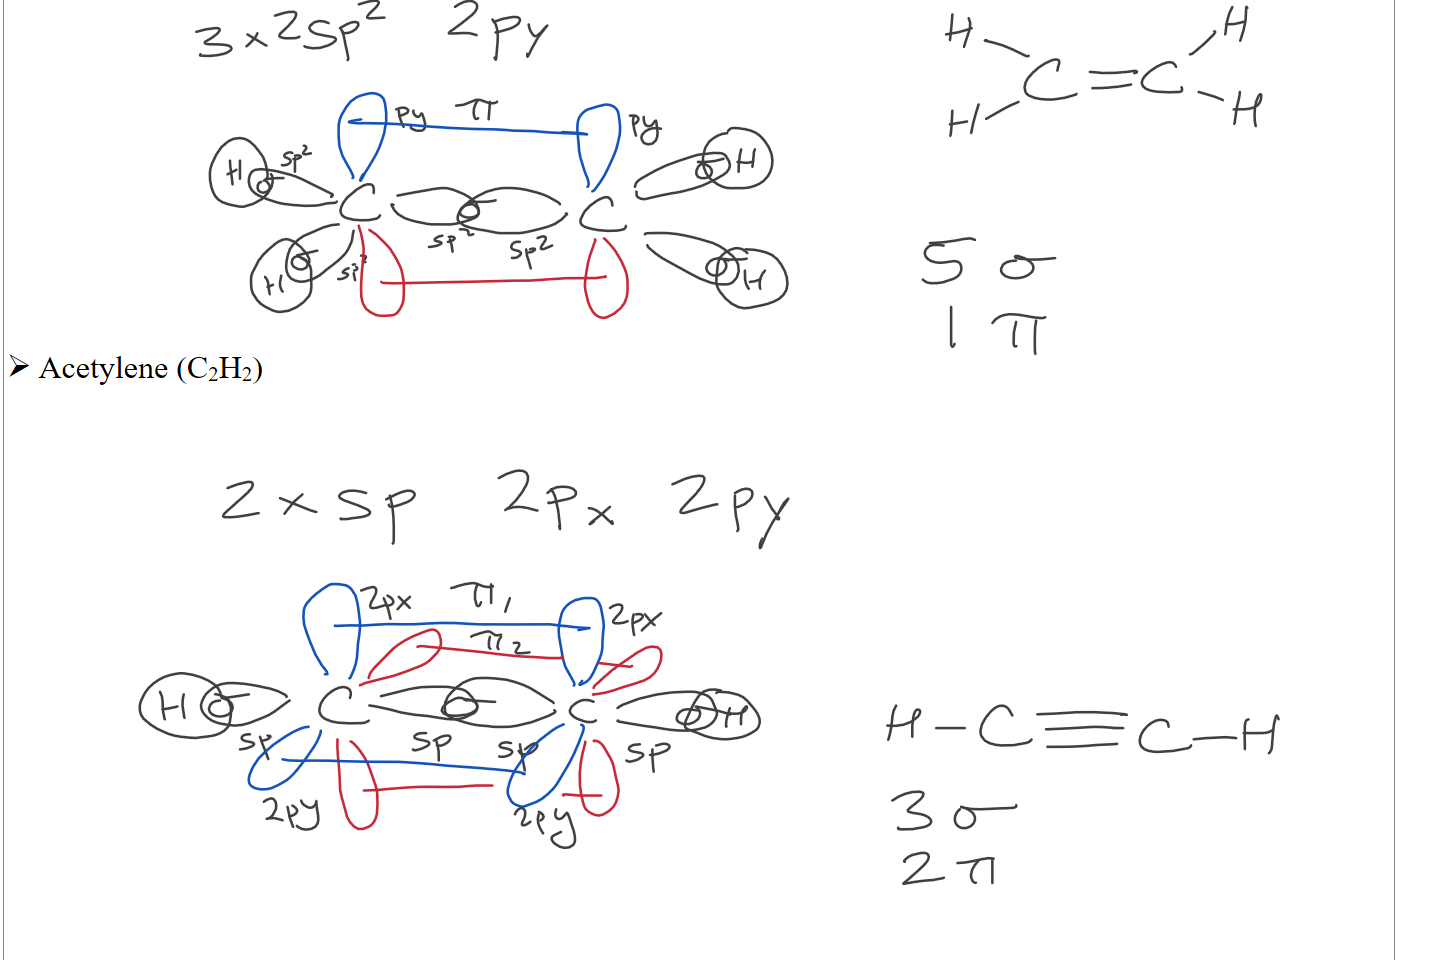 3 × 2sp² 2py
H H
C = C
H H
py π py
H sp² σ C sp² σ sp² C σ H
H sp² σ σ H
5 σ
1 π
➤ Acetylene (C₂H₂)
2 × sp 2px 2py
2px π₁ 2px
π₂
H σ C σ C σ H
sp sp sp sp
2py 2py
H – C ≡ C – H
3 σ
2 π